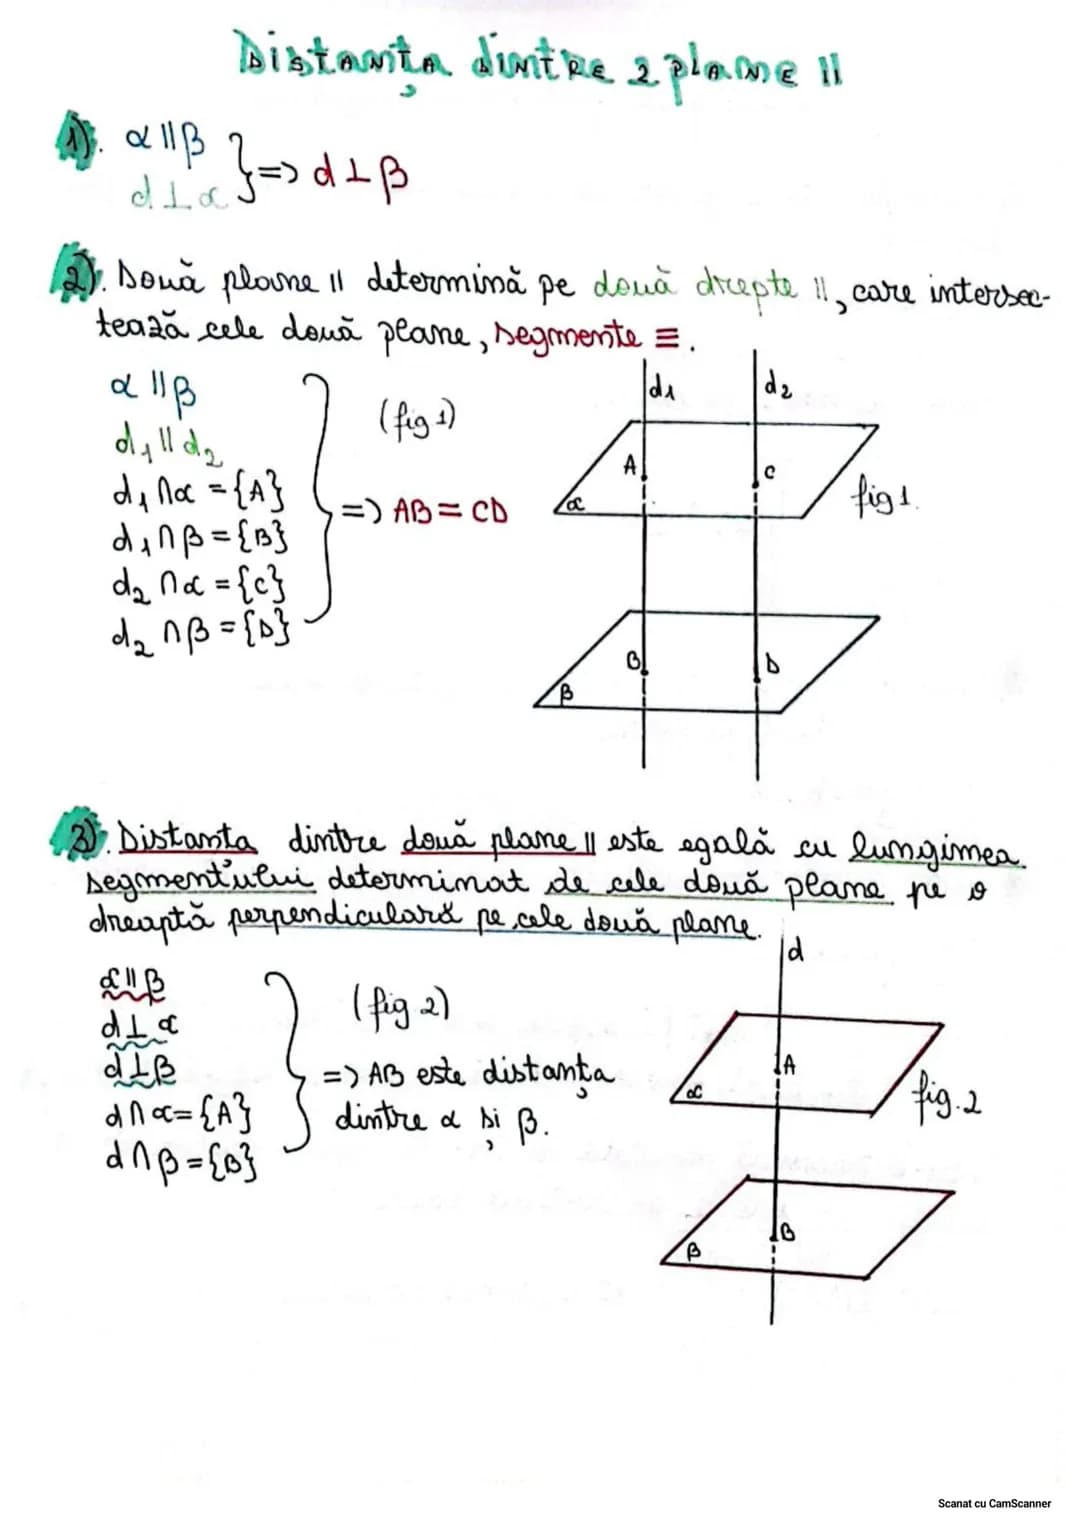 Distanța dintre 2 plane ||
1). α || β
d ⊥ α } => d ⊥ β
2). Două plane || determină pe două drepte ||, care intersec-
tează cele două plane, segmente ≡.
α || β
d₁ || d₂
d₁ ∩ α = {A}
d₁ ∩ β = {B}
d₂ ∩ α = {C}
d₂ ∩ β = {D}
(fig 1)
=> AB = CD
d₁
d₂
A
C
α
fig 1.
B
D
β
3). Distanta dintre două plane || este egală cu lungimea
segmentului determinat de cele două plane pe o
dreaptă perpendiculară pe cele două plane.
α || β
d ⊥ α
d ⊥ β
d ∩ α = {A}
d ∩ β = {B}
(fig. 2)
=> AB este distanța
dintre α și β.
d
A
α
fig. 2
B
β
Scanat cu CamScanner